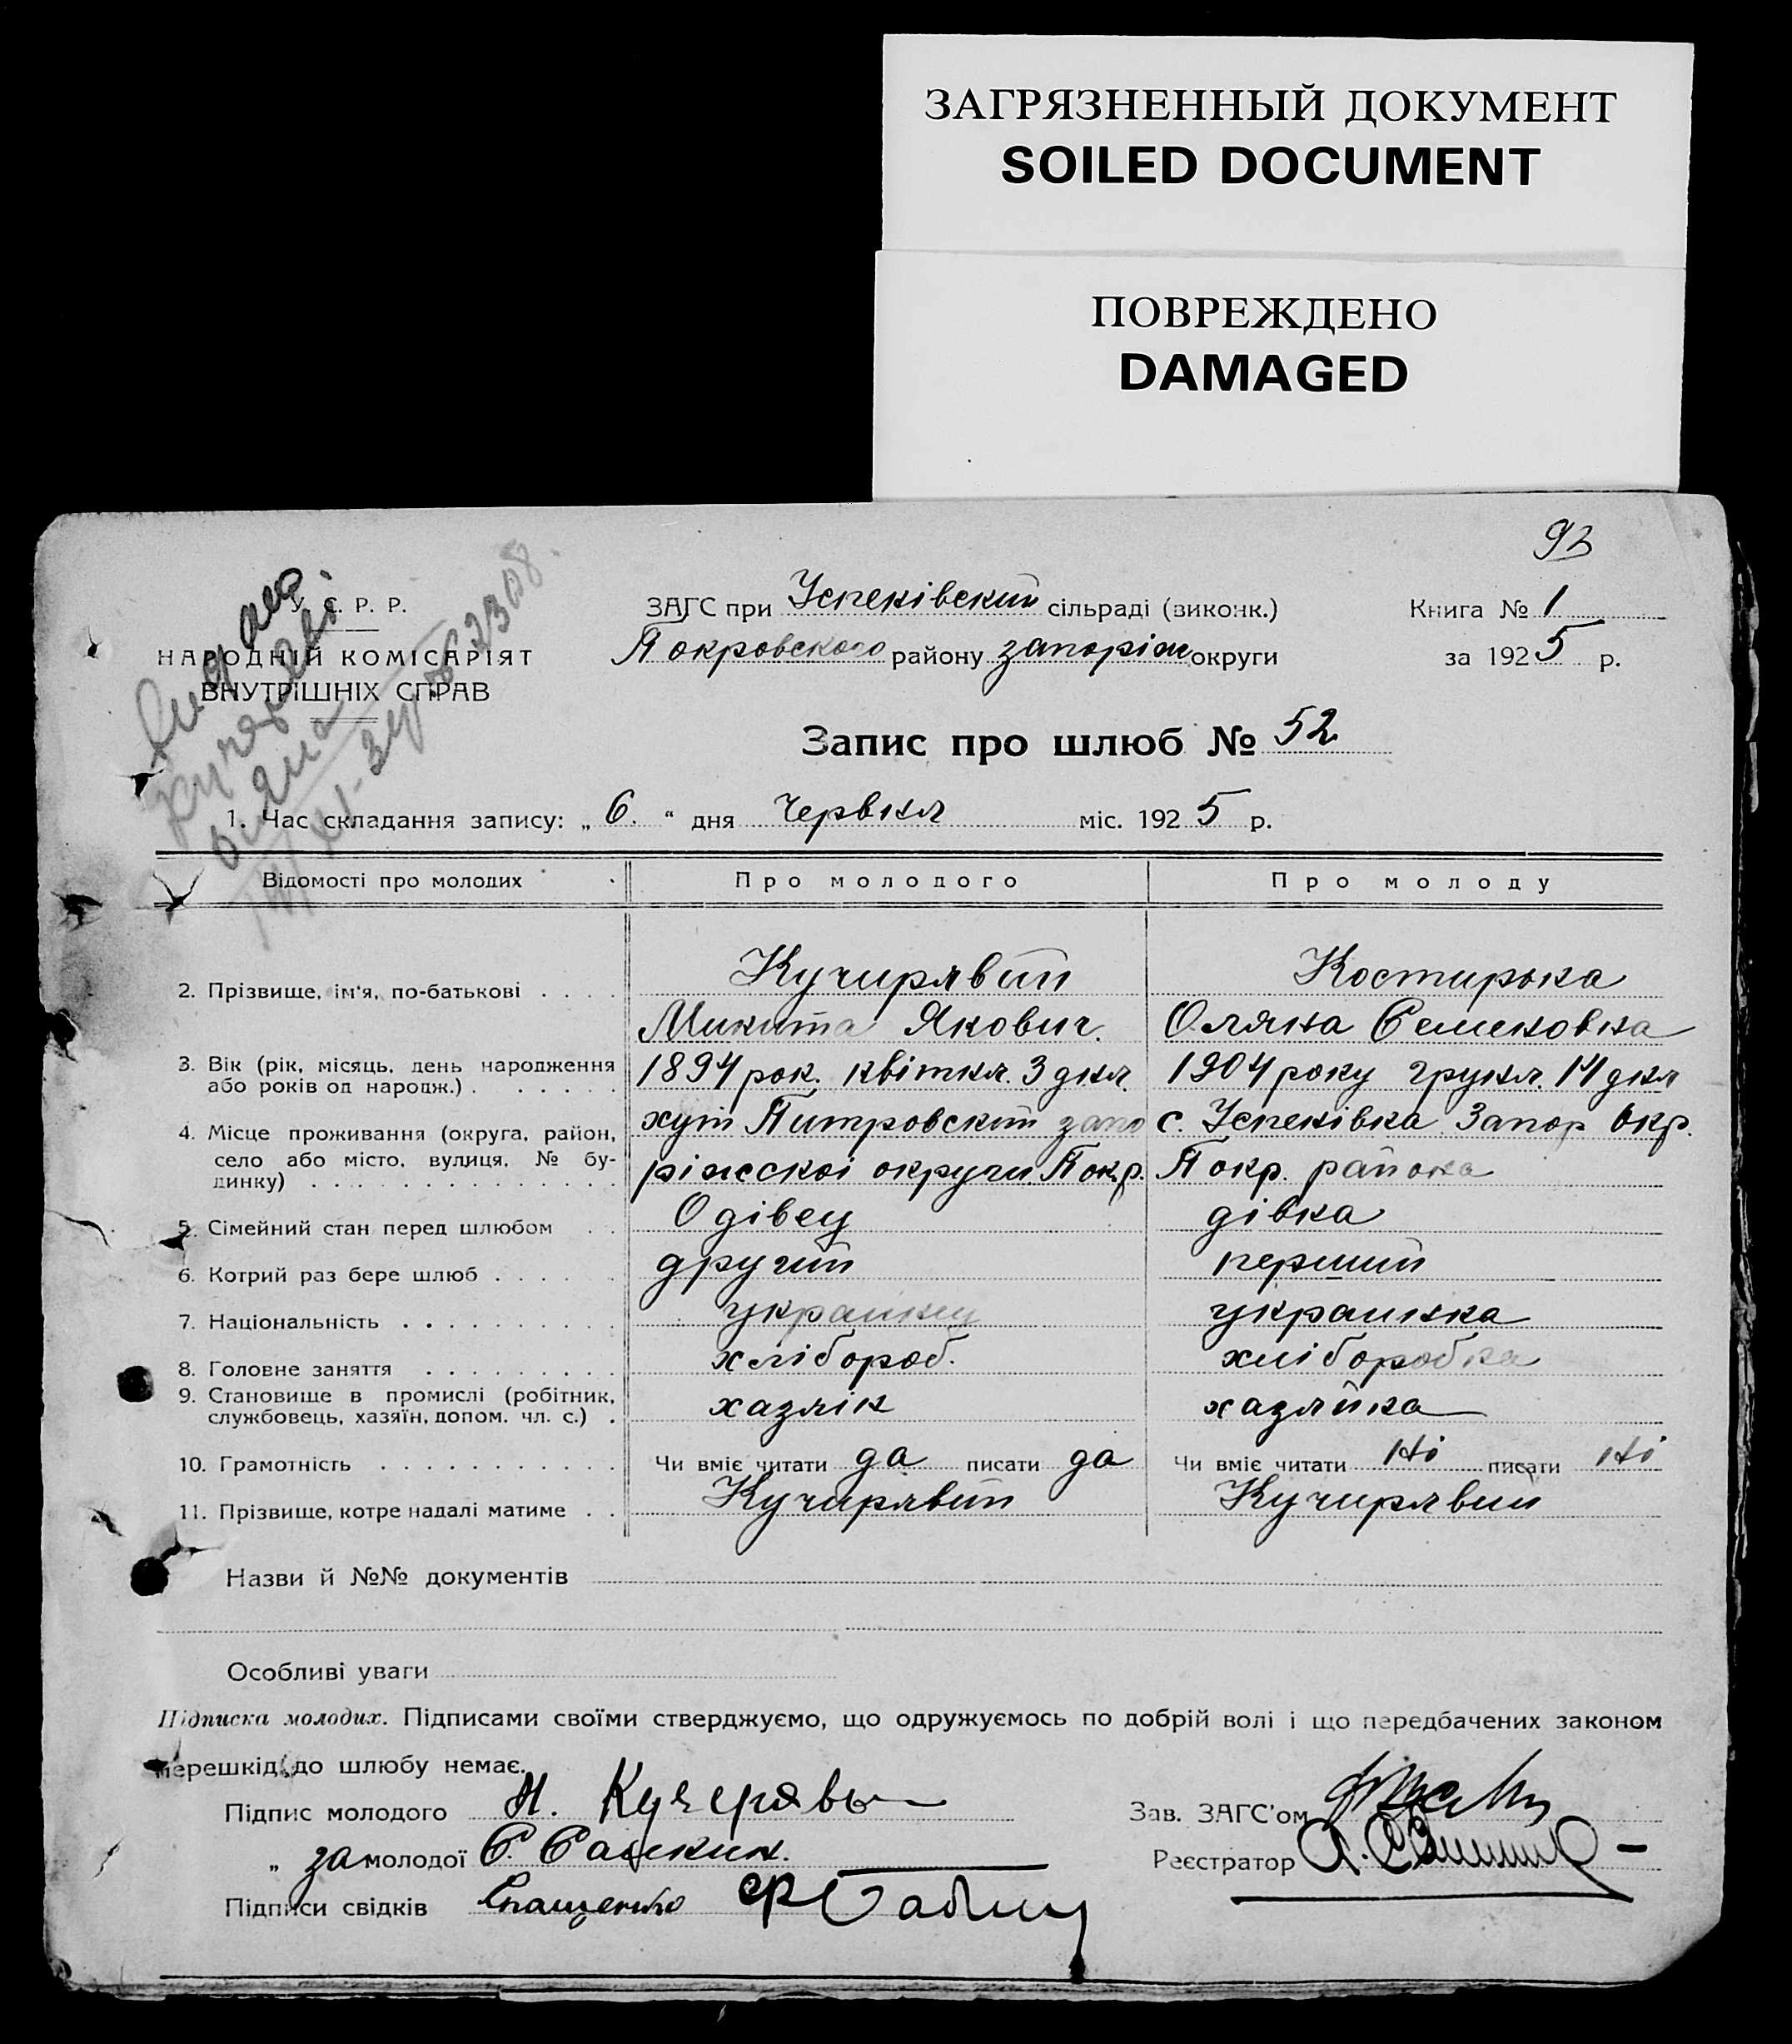 ЗАГРЯЗНЕННЫЙ ДОКУМЕНТ
SOILED DOCUMENT
ПОВРЕЖДЕНО
DAMAGED
93
У. С. Р. Р.
НАРОДНІЙ КОМІСАРІЯТ
ВНУТРІШНІХ СПРАВ
ЗАГС при Успенівский сільраді (виконк.)
Покровского району запоріж округи
Книга № 1
за 1925 р.
Запис про шлюб № 52
1. Час складання запису: „ 6. “ дня Червня міс. 1925 р.
Відомості про молодих Про молодого Про молоду
2. Прізвище, ім'я, по-батькові . . . . Кучирявий Костирька
Микита Якович. Оляна Семеновна
3. Вік (рік, місяць, день народження 1894 рок. квітня. 3 дня 1904 року грудня. 14 дня
або років од народж.) . . . . . .
4. Місце проживання (округа, район, хут Питровский запо с. Успенівка Запор Окр.
село або місто, вулиця, № бу- ріжскоі округи Покр. Покр. района
динку) . . . . . . . . . . . . . .
5. Сімейний стан перед шлюбом . . Одівец дівка
6. Котрий раз бере шлюб . . . . . . другий перший
7. Національність . . . . . . . . . . украинец украинка
8. Головне заняття . . . . . . . . . хлібороб. хліборобка
9. Становище в промислі (робітник, хазяін хазяйка
службовець, хазяїн, допом. чл. с.) .
10. Грамотність . . . . . . . . . . . Чи вміє читати да писати да Чи вміє читати Ні писати Ні
11. Прізвище, котре надалі матиме . . Кучирявий Кучирявий
Назви й №№ документів
Особливі уваги
Підписка молодих. Підписами своїми стверджуємо, що одружуємось по добрій волі і що передбачених законом
перешкід до шлюбу немає.
Підпис молодого Н. Кучерявы
Зав. ЗАГС'ом
„ за молодої С.
Реєстратор
Підписи свідків